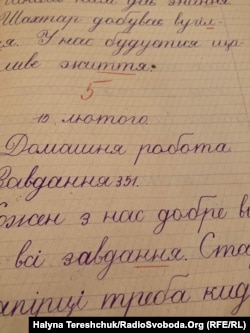 дає знання
Шахтар добуває вугіл-
ля. У нас будується щас-
ливе життя.
5
10 лютого.
Домашня робота
Завдання 351.
Кожен з нас добре в
всі завдання. Ста
папірці треба кид
Halyna Tereshchuk/RadioSvoboda.Org (RFE/RL)